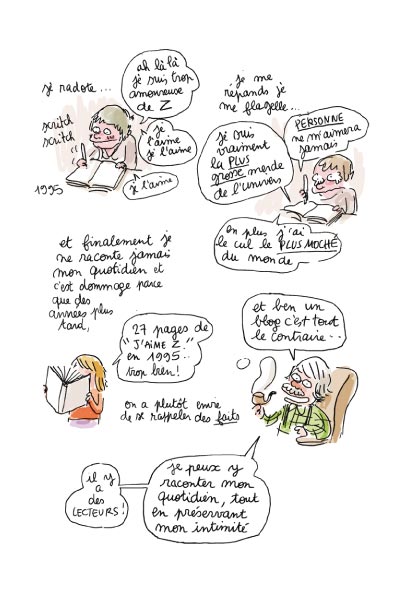 je radote...
ah là là
je suis trop
amoureuse
de Z
je
l'aime
je l'aime
je l'aime
scritch
scritch
1995
je me
répands je
me flagelle...
PERSONNE
ne m'aimera
jamais
je suis
vraiment
la PLUS
grosse merde
de l'univers
en plus j'ai
le cul le PLUS MOCHE
du monde
et finalement je
ne raconte jamais
mon quotidien et
c'est dommage parce
que des
années plus
tard,
27 pages de
"J'AIME Z"
en 1995..
trop bien!
on a plutôt envie
de se rappeler des faits
et ben un
blog c'est tout
le contraire..
il y
a
des
LECTEURS!
je peux y
raconter mon
quotidien, tout
en préservant
mon intimité